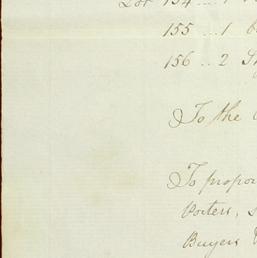 Lot 154 ... 1
155 ... 1
156 .. 2
To the
To propor
Porters, s
Buyers